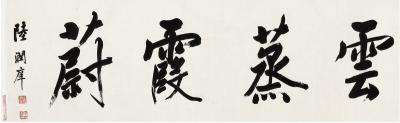 雲蒸霞蔚
陸潤庠